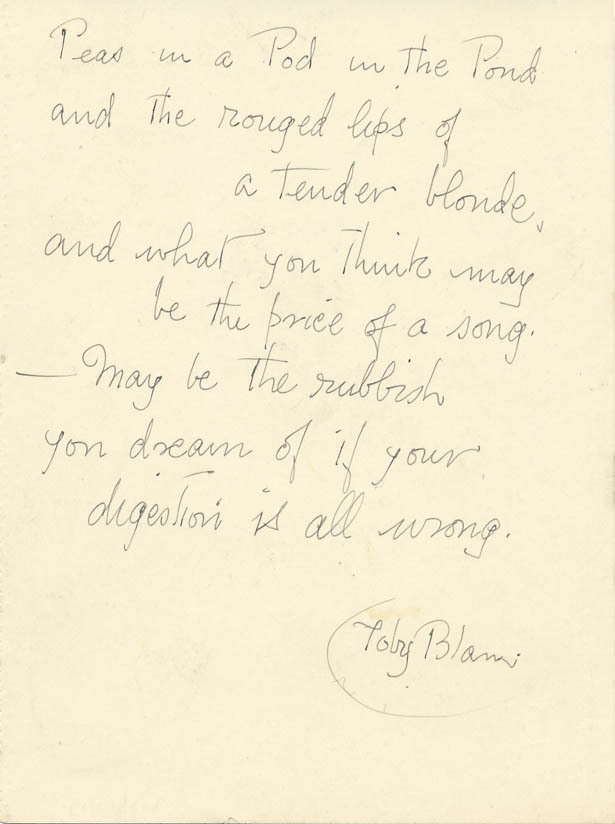 Peas in a Pod in the Pond
and the rouged lips of
a tender blonde,
and what you think may
be the price of a song.
— May be the rubbish
you dream of if your
digestion is all wrong.
Toby